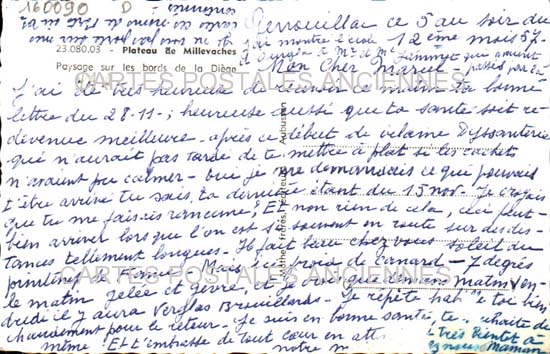 160090 D
Pérrouillac ce 5 au soir du
12ème mois 57
Mon Cher Marcel
23.080.03 - Plateau de Millevaches
Paysage sur les bords de la Diège
CARTES POSTALES ANCIENNES
J'ai été très heureuse de recevoir ce matin ta bonne
lettre du 28-11-; heureuse aussi que ta santé soit re-
devenue meilleure - après ce début de vilaine Dyssenterie
qui n'aurait pas tardé de te mettre à plat si les cachets
n'avaient pu calmer - oui je me demandais ce qui pouvait
t'être arrivé tu sais, ta dernière étant du 15 nov. Je croyais
que tu me faisais rancune! Et non rien de cela, ceci peut-
bien arriver lorsque l'on est si souvent en route sur des dis-
tances tellement longues. Il fait beau chez vous soleil du
printemps Mais ici froid de canard - 7 degrés
le matin gelée et givre, et je crois que demain matin Ven-
dredi il y aura Verglas Brouillards. Je répète toi bien
chaudement pour le retour. Je suis en bonne santé, te souhaite de
même. Et t'embrasse de tout cœur en att
très Bientôt à
notre
Maman
CARTES POSTALES ANCIENNES
Frères, Editeurs Aubusson